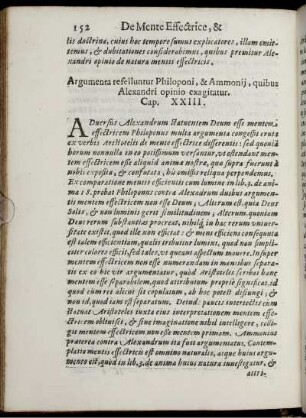 152 De Mente Effectrice, &
lis doctrina, cuius hoc tempore sumus explicatores, illam omit-
temus, & dubitationes considerabimus, quibus premitur Alex-
andri opinio de natura mentis effectricis.
Argumenta refelluntur Philoponi, & Ammonij, quibus
Alexandri opinio exagitatur.
Cap. XXIII.
ADuersus Alexandrum statuentem Deum esse mentem
effectricem Philoponus multa argumenta congessit eruta
ex verbis Aristotelis de mente effectrice differentis: sed quoniā
horum nonnulla in eo potissimum versantur, vt ostendant men-
tem effectricem esse aliquid anima nostra, quæ supra fuerunt à
nobis exposita, & confutata, his omissis reliqua perpendemus.
Ex comparatione mentis efficientis cum lumine in lib. 3. de ani-
ma s. 18. probat Philoponus contra Alexandrum duabus argumen-
tis mentem effectricem non esse Deum, Alterum est. quia Deus
Solis, & non luminis gerit similitudinem, Alterum. quoniam
Deus rerum substantias procreat, nobis autem in hac rerum vniuersi-
tate existit, quod ille non efficiat: & mens efficiens consequuta
est talem efficientiam, qualis tribuitur lumini, quod non simpli-
citer colores efficit, sed tales, vt queant aspectum mouere. Insuper
mentem effectricem non esse numerandam in mentibus separa-
tis ex eo hic vir argumentatur, quòd Aristoteles scribat hanc
mentem esse separabilem, quod attributum propriè significat, id
quod cum re alicui sit copulatum, ab hac potest disiungi; &
non id, quod iam est separatum. Deinde paucis interiectis cum
statuat Aristoteles iuxta eius interpretationem mentem effec-
tricem obliuisci, & sine imaginatione nihil intelligere, colli-
git mentem effectricem non esse mentem primam. Ammonius
præterea contra Alexandrum ita fuit argumentatus. Contem-
platio mentis effectricis est omnino naturalis, atque huius argu-
mento est, quòd in lib. 3. de anima huius natura inuestigatur, &